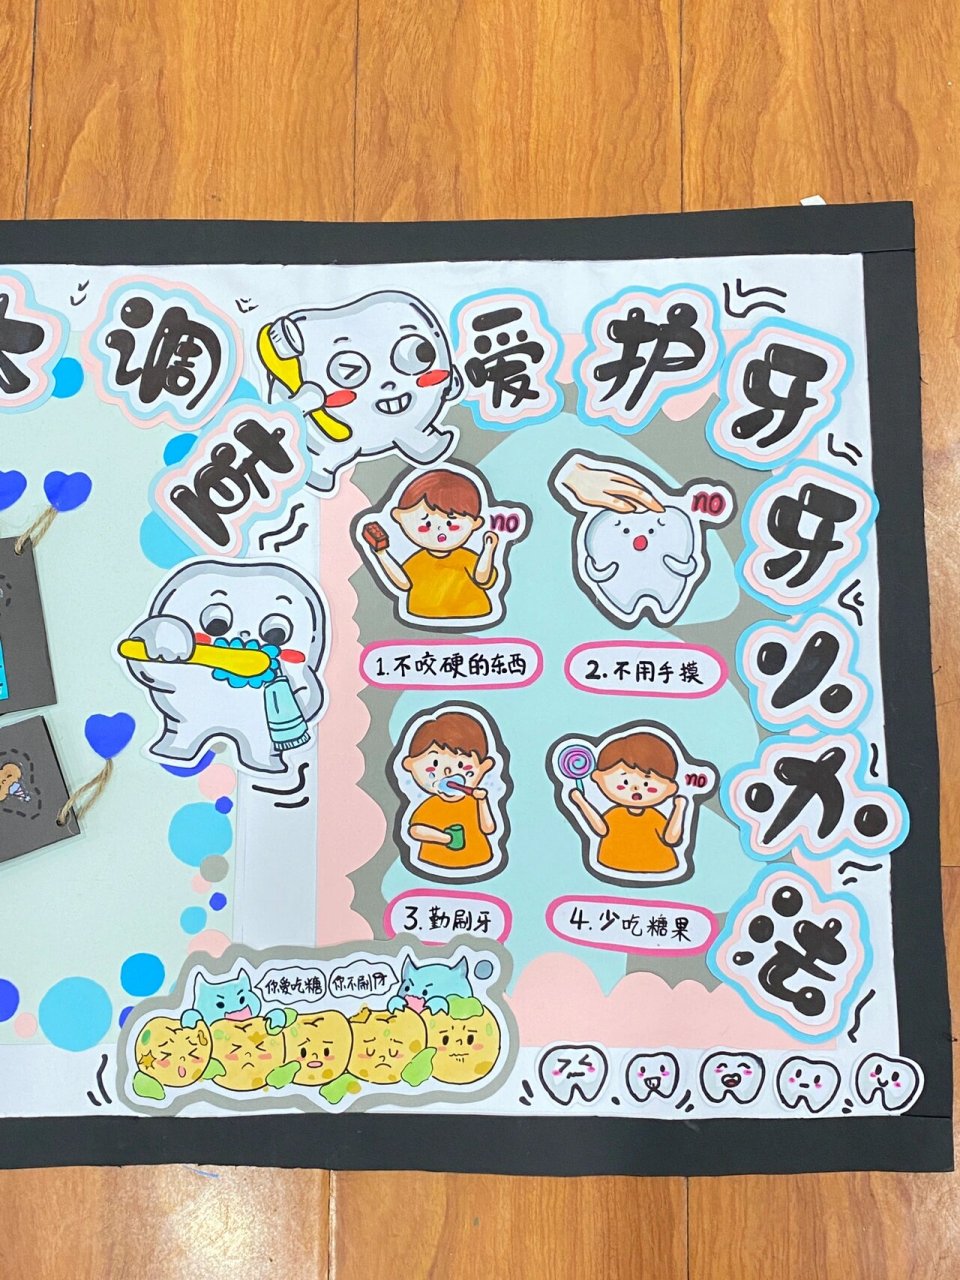 调查
爱护牙牙小办法
no
no
1.不咬硬的东西
2.不用手摸
no
3.勤刷牙
4.少吃糖果
你爱吃糖
你不刷牙